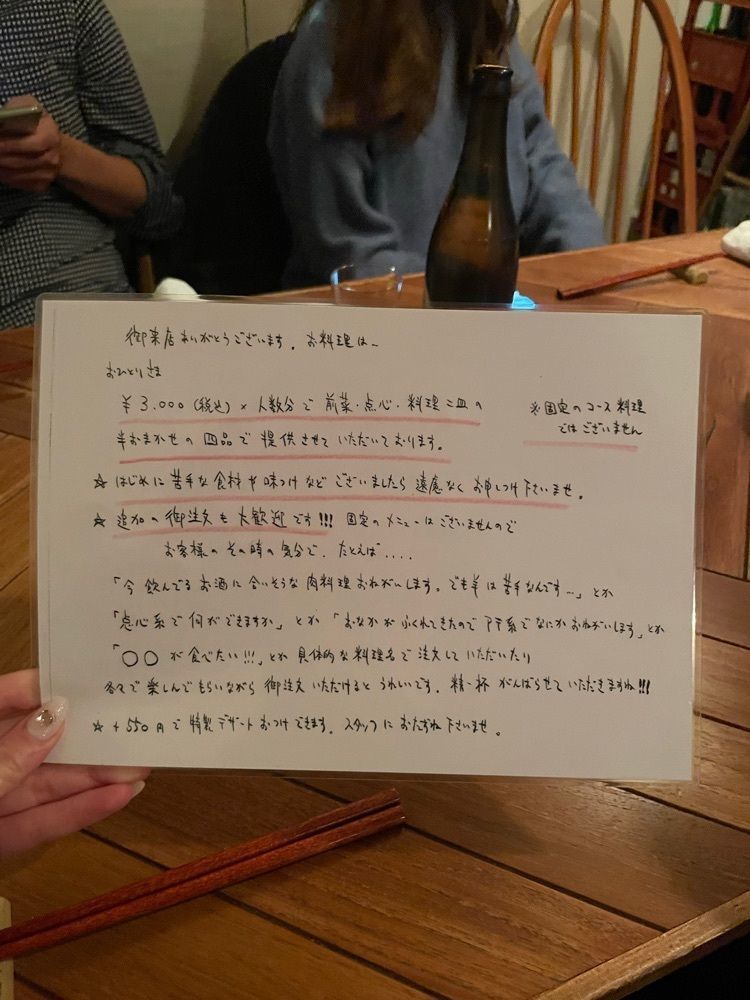 御来店ありがとうございます。お料理は〜
おひとりさま
¥3.000(税込)×人数分で 前菜・点心・料理二皿の
半おまかせの四品で提供させていただいております。
※固定のコース料理
ではございません
☆はじめに苦手な食材や味つけなどございましたら遠慮なくお申しつけ下さいませ。
☆追加の御注文も大歓迎です!!! 固定のメニューはございませんので
お客様のその時の気分で、たとえば....
「今飲んでるお酒に合いそうな肉料理おねがいします。でも羊は苦手なんです...」とか
「点心系で何ができますか」とか「おなかがふくれてきたのでアテ系でなにかおねがいします」とか
「〇〇が食べたい!!!」とか具体的な料理名で注文していただいたり
各々で楽しんでもらいながら御注文いただけるとうれいです。精一杯がんばらせていただきますね!!!
☆+550円で特製デザートおつけできます。スタッフにおたずね下さいませ。